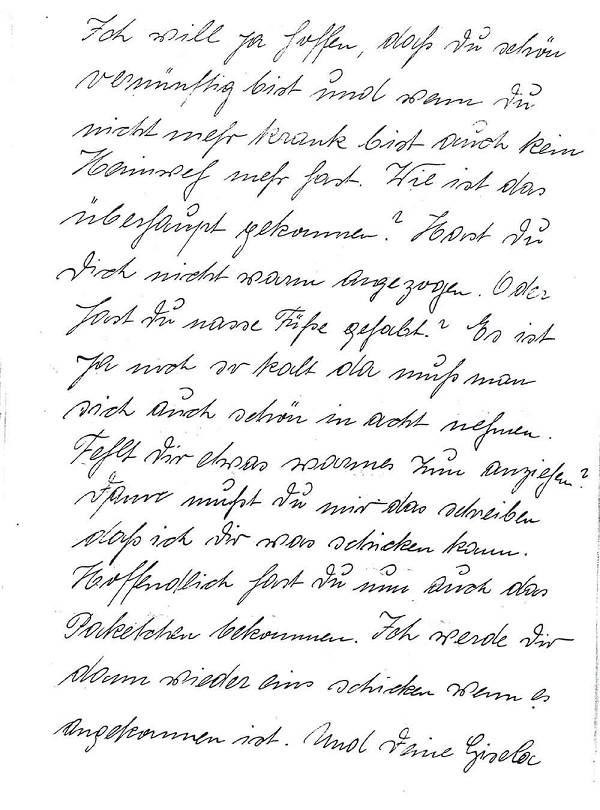 Ich will ja hoffen, daß du schön
vernünftig bist und wenn du
nicht mehr krank bist auch kein
Heimweh mehr hast. Wie ist das
überhaupt gekommen? Hast du
dich nicht warm angezogen. Oder
hast du nasse Füße gehabt? Es ist
ja noch so kalt da muß man
sich auch schön in acht nehmen.
Fehlt dir etwas warmes zum anziehen?
Dann mußt du mir das schreiben
daß ich dir was schicken kann.
Hoffendlich hast du nun auch das
Paketchen bekommen. Ich werde dir
dann wieder eins schicken wenn es
angekommen ist. Und deine Gisela